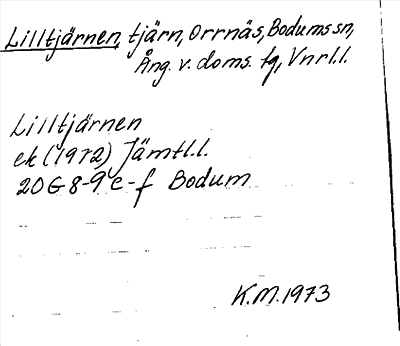 Lilltjärnen, tjärn, Orrnäs, Bodums sn,
Ång. v. doms. tg, Vnrl.l.
Lilltjärnen
ek (1972) Jämtl.l.
20G 8-9 e-f Bodum
K.M. 1973